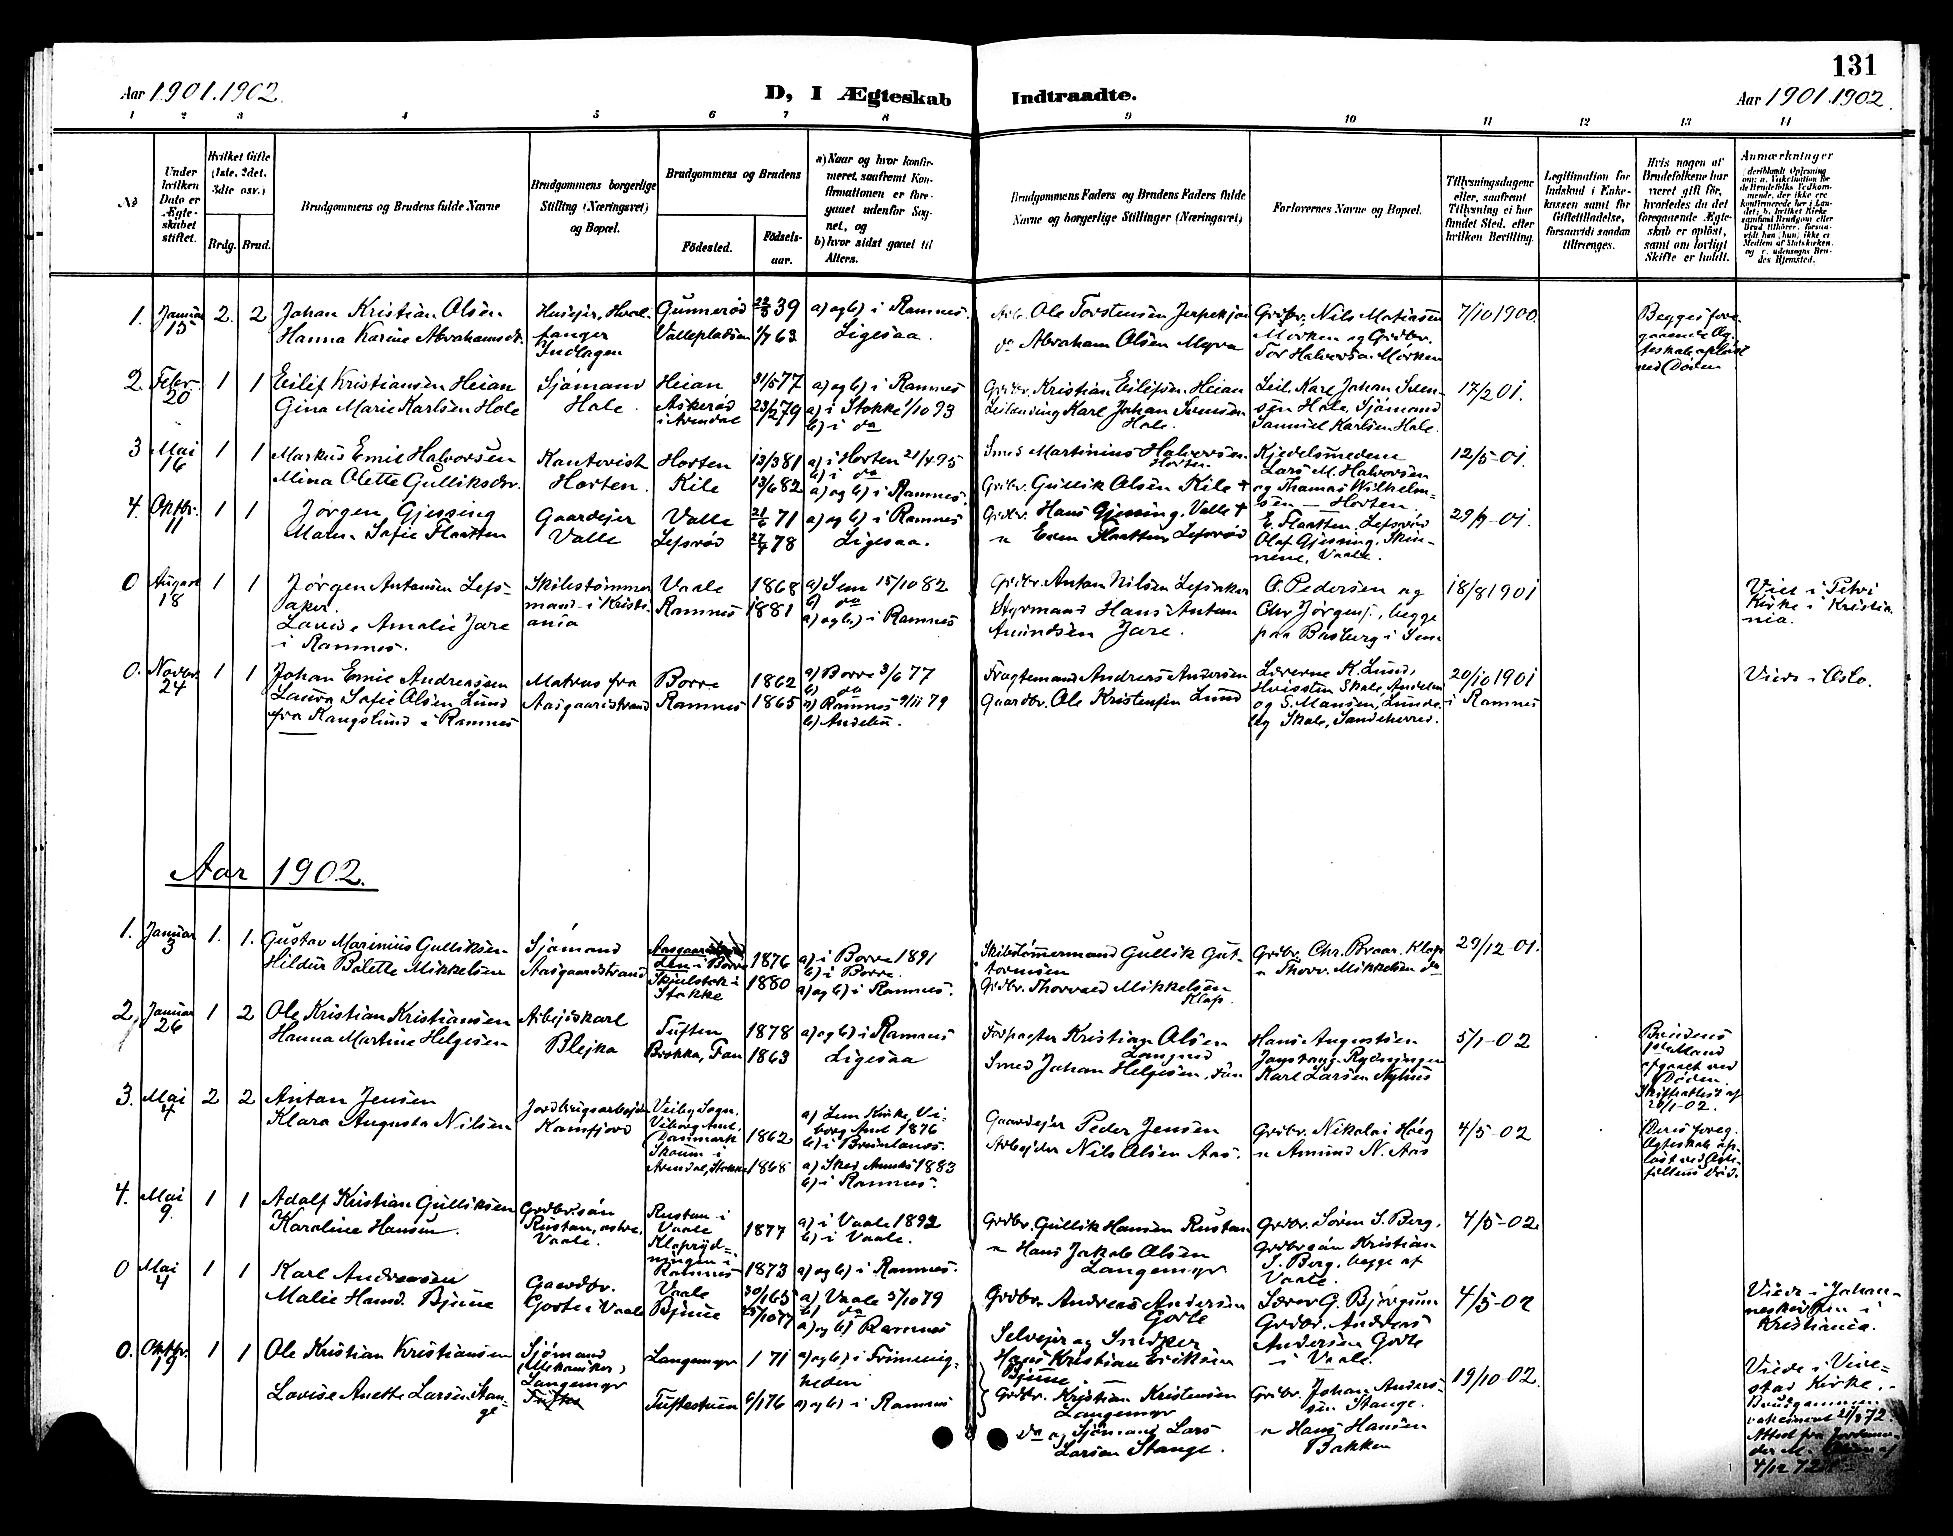 131
Aar 1901.1902.
D, I Ægteskab Indtraadte.
Aar 1901.1902.
1 2 3 4 5 6 7 8 9 10 11 12 13 14
No
Under hvilken Dato er Ægteskabet stiftet.
Hvilket Gifte (1ste, 2det, 3die osv.)
Brdg. Brud.
Brudgommens og Brudens fulde Navne
Brudgommens borgerlige Stilling (Næringsvei) og Bopæl.
Brudgommens og Brudens
Födested.
Födselsaar.
a) Naar og hvor konfirmeret, saafremt Konfirmationen er foregaaet udenfor Sognet, og
b) hvor sidst gaaet til Alters.
Brudgommens Faders og Brudens Faders fulde Navne og borgerlige Stillinger (Næringsvei)
Forlovernes Navne og Bopæl.
Tillysningsdagene eller, saafremt Tillysning ei har fundet Sted, efter hvilken Bevilling.
Legitimation for Indskud i Enkekassen samt for Giftetilladelse, forsaavidt saadan tiltrænges.
Hvis nogen af Brudefolkene har været gift för, hvorledes da det foregaaende Ægteskab er oplöst, samt om lovligt Skifte er holdt.
Anmærkninger
1. Januar 15 2. 2 Johan Kristian Olsen
Hanna Karine Abrahamsdr.
Gunnerød 39
Vallepladsen 1/7 63
a) og b) i Ramnes.
Ligesaa.
Ole Torstensen
do Abraham Olsen Myra
Grdbr. Nils Matiassen
Mørken og Grdbr.
Tor Halvorsen Mørken
7/10 1900.
Begges foregaaende Ægteskab opløst ved Døden
2. Febr. 20 1 1 Eilif Kristiansen Heian
Gina Marie Karlsen Hole
Sjömand
Hole.
Heian 31/5 77
Askerød i Arendal 23/2 79
a) og b) i Ramnes
a) i Stokke 1/10 93
b) i do
Grdbr. Kristian Eilifsen Heian
Leilending Karl Johan Svensen
Hole.
Leil. Karl Johan Svensen Hole, Sjömand
Samuel Karlsen Hole.
17/2 01.
3 Mai 16 1 1 Markus Emil Halvorsen
Mina Olette Gulliksdr.
Kantorist
Horten.
Horten 13/3 81
Kile 13/6 82
a) i Horten 21/4 95
b) i do
a) og b) i Ramnes.
Smed Martinius Halvorsen
Horten.
Grdbr. Gullik Olsen Kile +
Kjedelsmedene
Lars M. Halvorsen
og Thomas Wilhelmsen — Horten.
12/5-01.
4. Oktbr. 11 1 1 Jørgen Gjessing
Maren Sofie Flaatten
Gaardejer
Valle
Valle 21/6 71
Lefsrød 27/4 78
a) og b) i Ramnes
Ligesaa.
Grdbr. Hans Gjessing, Valle +
" Even Flaatten Lefsrød
E. Flaatten, Lefsrød
Olaf Gjessing, Skinnene, Vaale.
29/9-01.
0 August 18 1 1 Jørgen Antonsen Lefsaker.
Lovise Amalie Jare
i Ramnes.
Skibstømmermand i Kristiania
Vaale 1868
Ramnes 1881
a) Sem 15/10 82
b) do
a) og b) i Ramnes
Grdbr. Anton Nilsen Lefsaker
Styrmand Hans Anton
Amundsen Jare.
O. Pedersen og
Chr. Jørgens., begge
paa Basberg i Sem
18/8 1901
Viet i Petri
Kirke i Kristiania.
0. Novbr. 24 1 1 Johan Emil Andreassen
Laura Sofie Olsen Lund
fra Kangslund i Ramnes
Matros fra
Aasgaardstrand
Borre 1862
Ramnes 1865
a) Borre 3/6 77
b) do
a) Ramnes 9/11 79
b) Andebu.
Fragtemand Andreas Andersen
Gaardbr. Ole Kristensen Lund
Lærerne K. Lund,
Hvitstein Skole, Andebu
og S. Mansen, Lundeby Skole, Sandeherred.
20/10 1901
i Ramnes
Viede i Oslo.
Aar 1902.
1. Januar 3 1. 1. Gustav Marinius Gulliksen
Hildur Bolette Mikkelsen
Sjömand
Aasgaardstrand
i Borre 1876
Skjelstok i Stokke 1880
a) i Borre 1891
b) i Borre.
a) og b) i Ramnes.
Skibstömmermand Gullik Guttormsen
Grdbr. Thorvald Mikkelsen
Klop.
Grdbr. Chr. Braar, Klop
" Thorv. Mikkelsen do
29/12-01.
2. Januar 26 1 2 Ole Kristian Kristiansen
Hanna Martine Helgesen
Arbejdskarl
Blejka
Tuften 1878
Brekka, Fon 1863
a) og b) i Ramnes
Ligesaa
Forpagter Kristian Olsen
Smed Johan Helgesen, Fon
Hans Augustsen
Karl Larsen Nyhus
5/1-02
Brudens 1ste Mand afgaaet ved Døden.
Skifteattest af 20/1-02.
3. Mai 4 2 2 Anton Jensen
Klara Augusta Nilsen
Jordbrugsarbejder
Kamfjord
Veiby Sogn, Viborg Amt, Danmark 1862
Skaum i Arendal, Stokke 1868
a) Lem Kirke, Viborg Amt 1876
b) i Brunlanes.
a) Skee Anneks 1883
b) i Ramnes.
Gaardejer Peder Jensen
Arbejder Nils Olsen Aas.
Grdbr. Nikolai Høeg
" Amund N. Aas
4/5-02
Deres foreg. Ægteskab opløst ved Ægtefællens Død.
4. Mai 9. 1 1 Adolf Kristian Gulliksen
Karoline Hansen.
Grdbrsön
Rustan, østre,
Vaale.
Rustan i Vaale 1877
Klopryd-ningen i Ramnes 1873
a) i Vaale 1892
b) i Vaale.
a) og b) i Ramnes.
Grdbr. Gullik Hansen Rustan
" Hans Jakob Olsen
Langemyr
Grdbr. Sören S. Berg,
Grdbrsön Kristian
S. Berg, begge af
Vaale.
4/5-02.
0 Mai 4 1 1 Karl Andreassen
Malie Hansd. Bjune
Gaardbr.
Gorle i Vaale
Vaale 30/1 65
Bjune 25/10 77
a) Vaale 5/10 79
b) do
a) og b) Ramnes
Grdbr. Andreas Andersen
Gorle
Selvejer og Snedker
Hans Kristian Eriksen
Bjune.
Lærer G. Bjørgum
Grdbr. Andreas
Andersen Gorle
i Vaale.
4/5-02
Viede i Johanneskirken i
Kristiania.
0. Oktbr. 19 1 1 Ole Kristian Kristiansen
Lovise Anette Larsen Stange
Sjömand
(Mekaniker)
Langemyr
Langemyr 71
Tuftestuen 6/1 76
a) og b) i Frimenigheden
a) og b) i Ramnes
Grdbr. Kristian Kristensen
Langemyr
do og Sjömand Lars
Larsen Stange.
Grdbr. Johan Anderssen Stange.
" Hans Hansen
Bakken
19/10-02.
Viede i Vivestad Kirke.
Brudgommen
vakcineret 21/9 72.
Attest fra
4/12 72